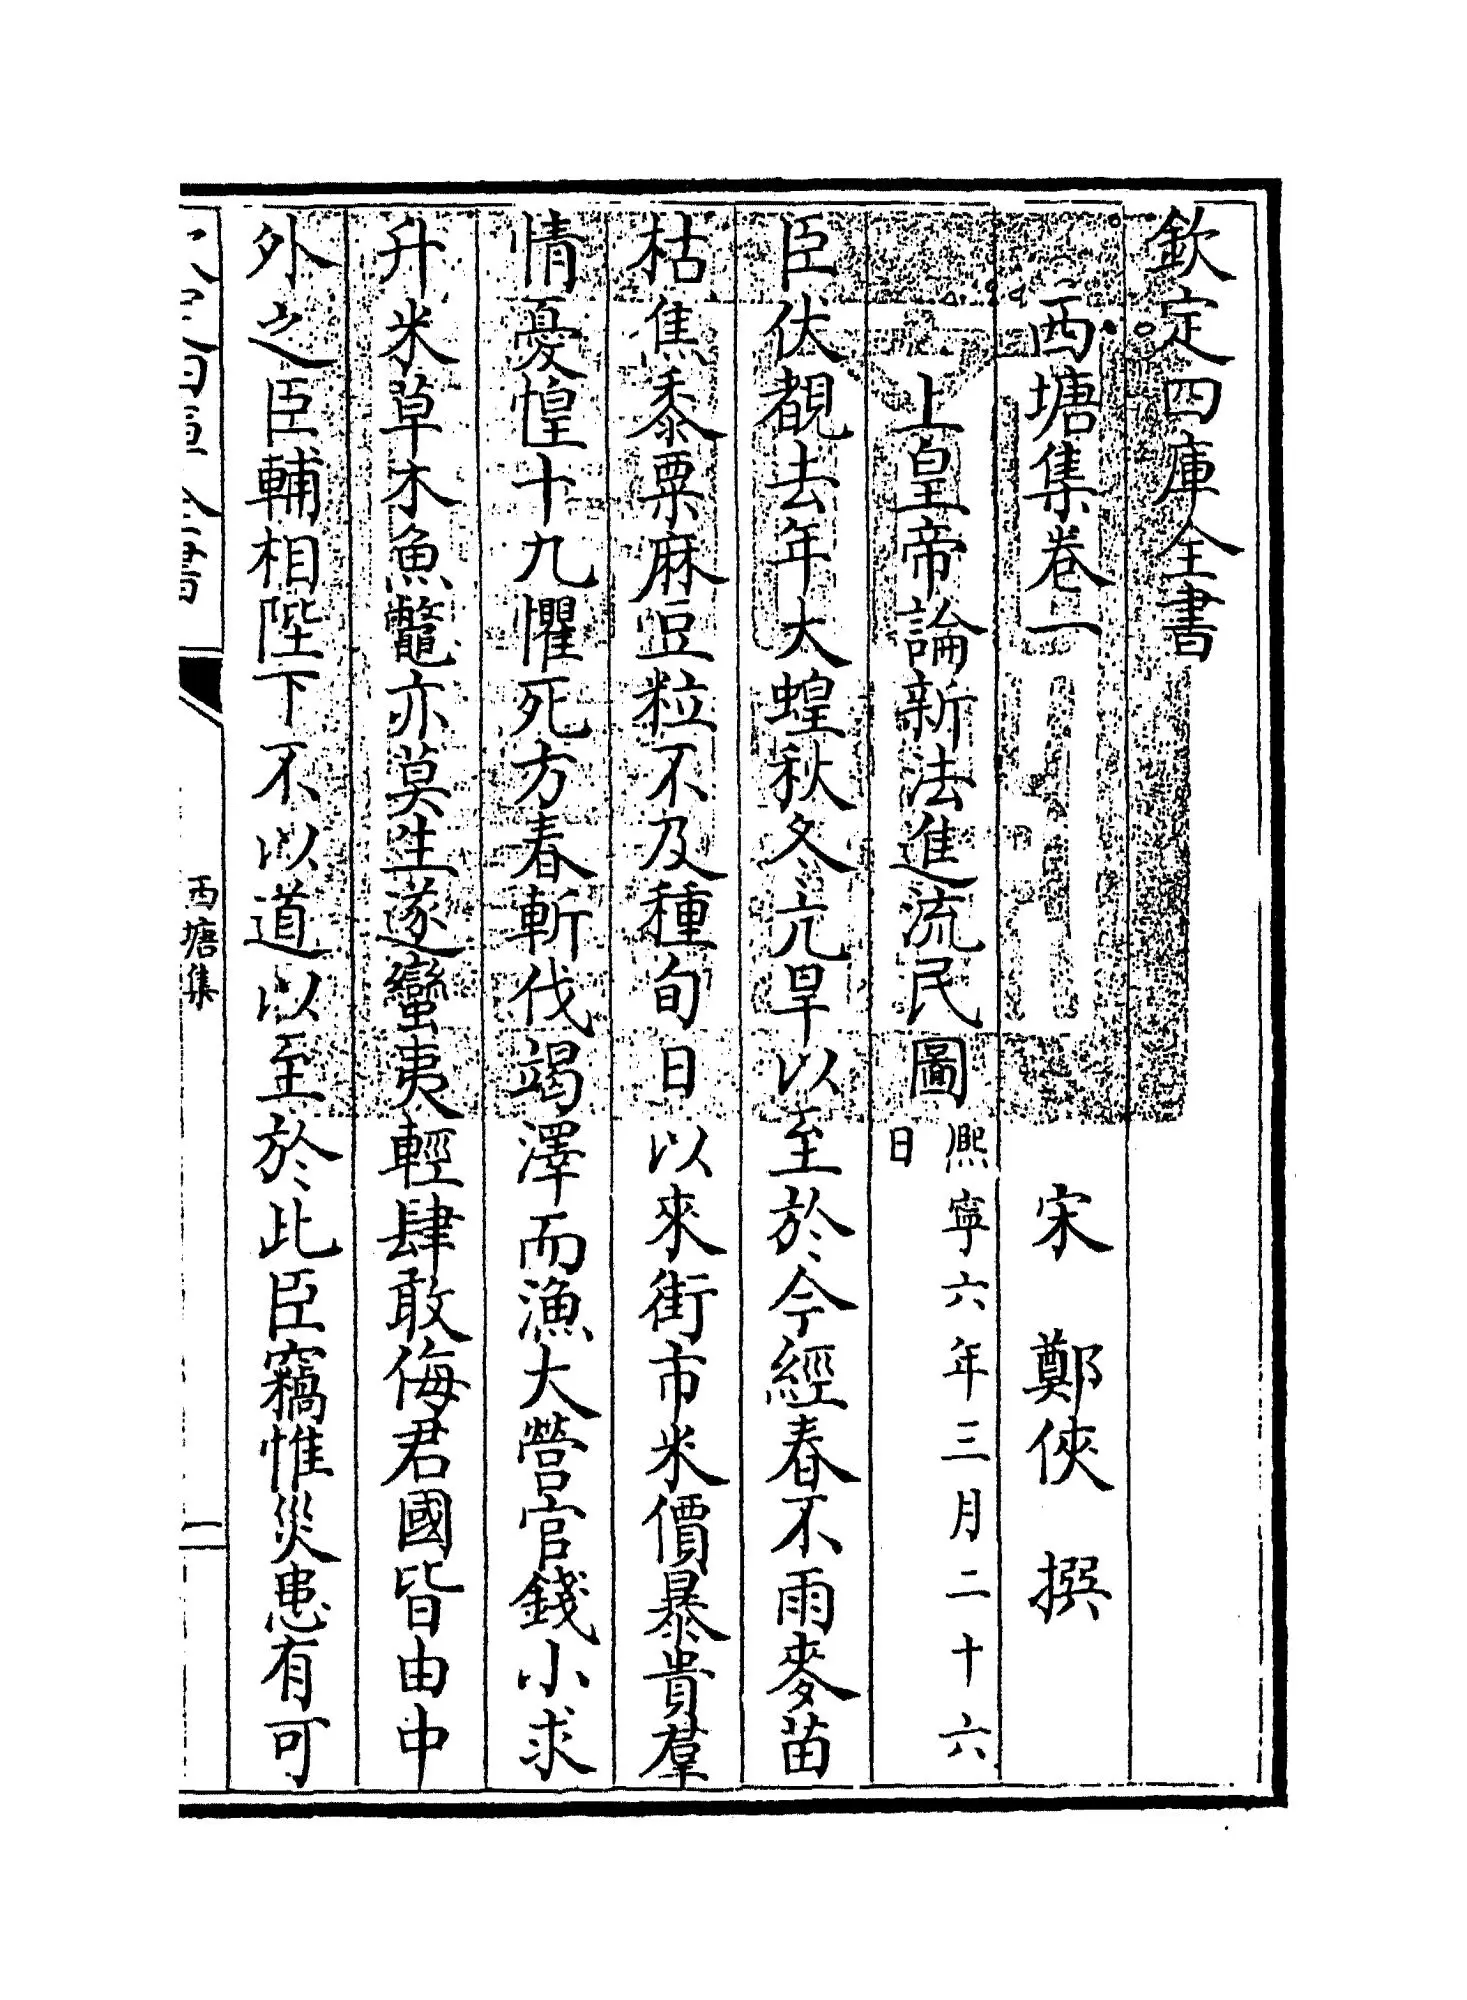 欽定四庫全書
西塘集卷一
宋 鄭俠 撰
上皇帝論新法進流民圖
熙寧六年三月二十六
日
臣伏覩去年大蝗秋冬亢旱以至於今經春不雨麥苗
枯焦黍粟麻豆粒不及種旬日以來街市米價暴貴羣
情憂惶十九懼死方春斬伐竭澤而漁大營官錢小求
升米草木魚鼈亦莫生遂蠻夷輕肆敢侮君國皆由中
外之臣輔相陛下不以道以至於此臣竊惟災患有可
西塘集
一